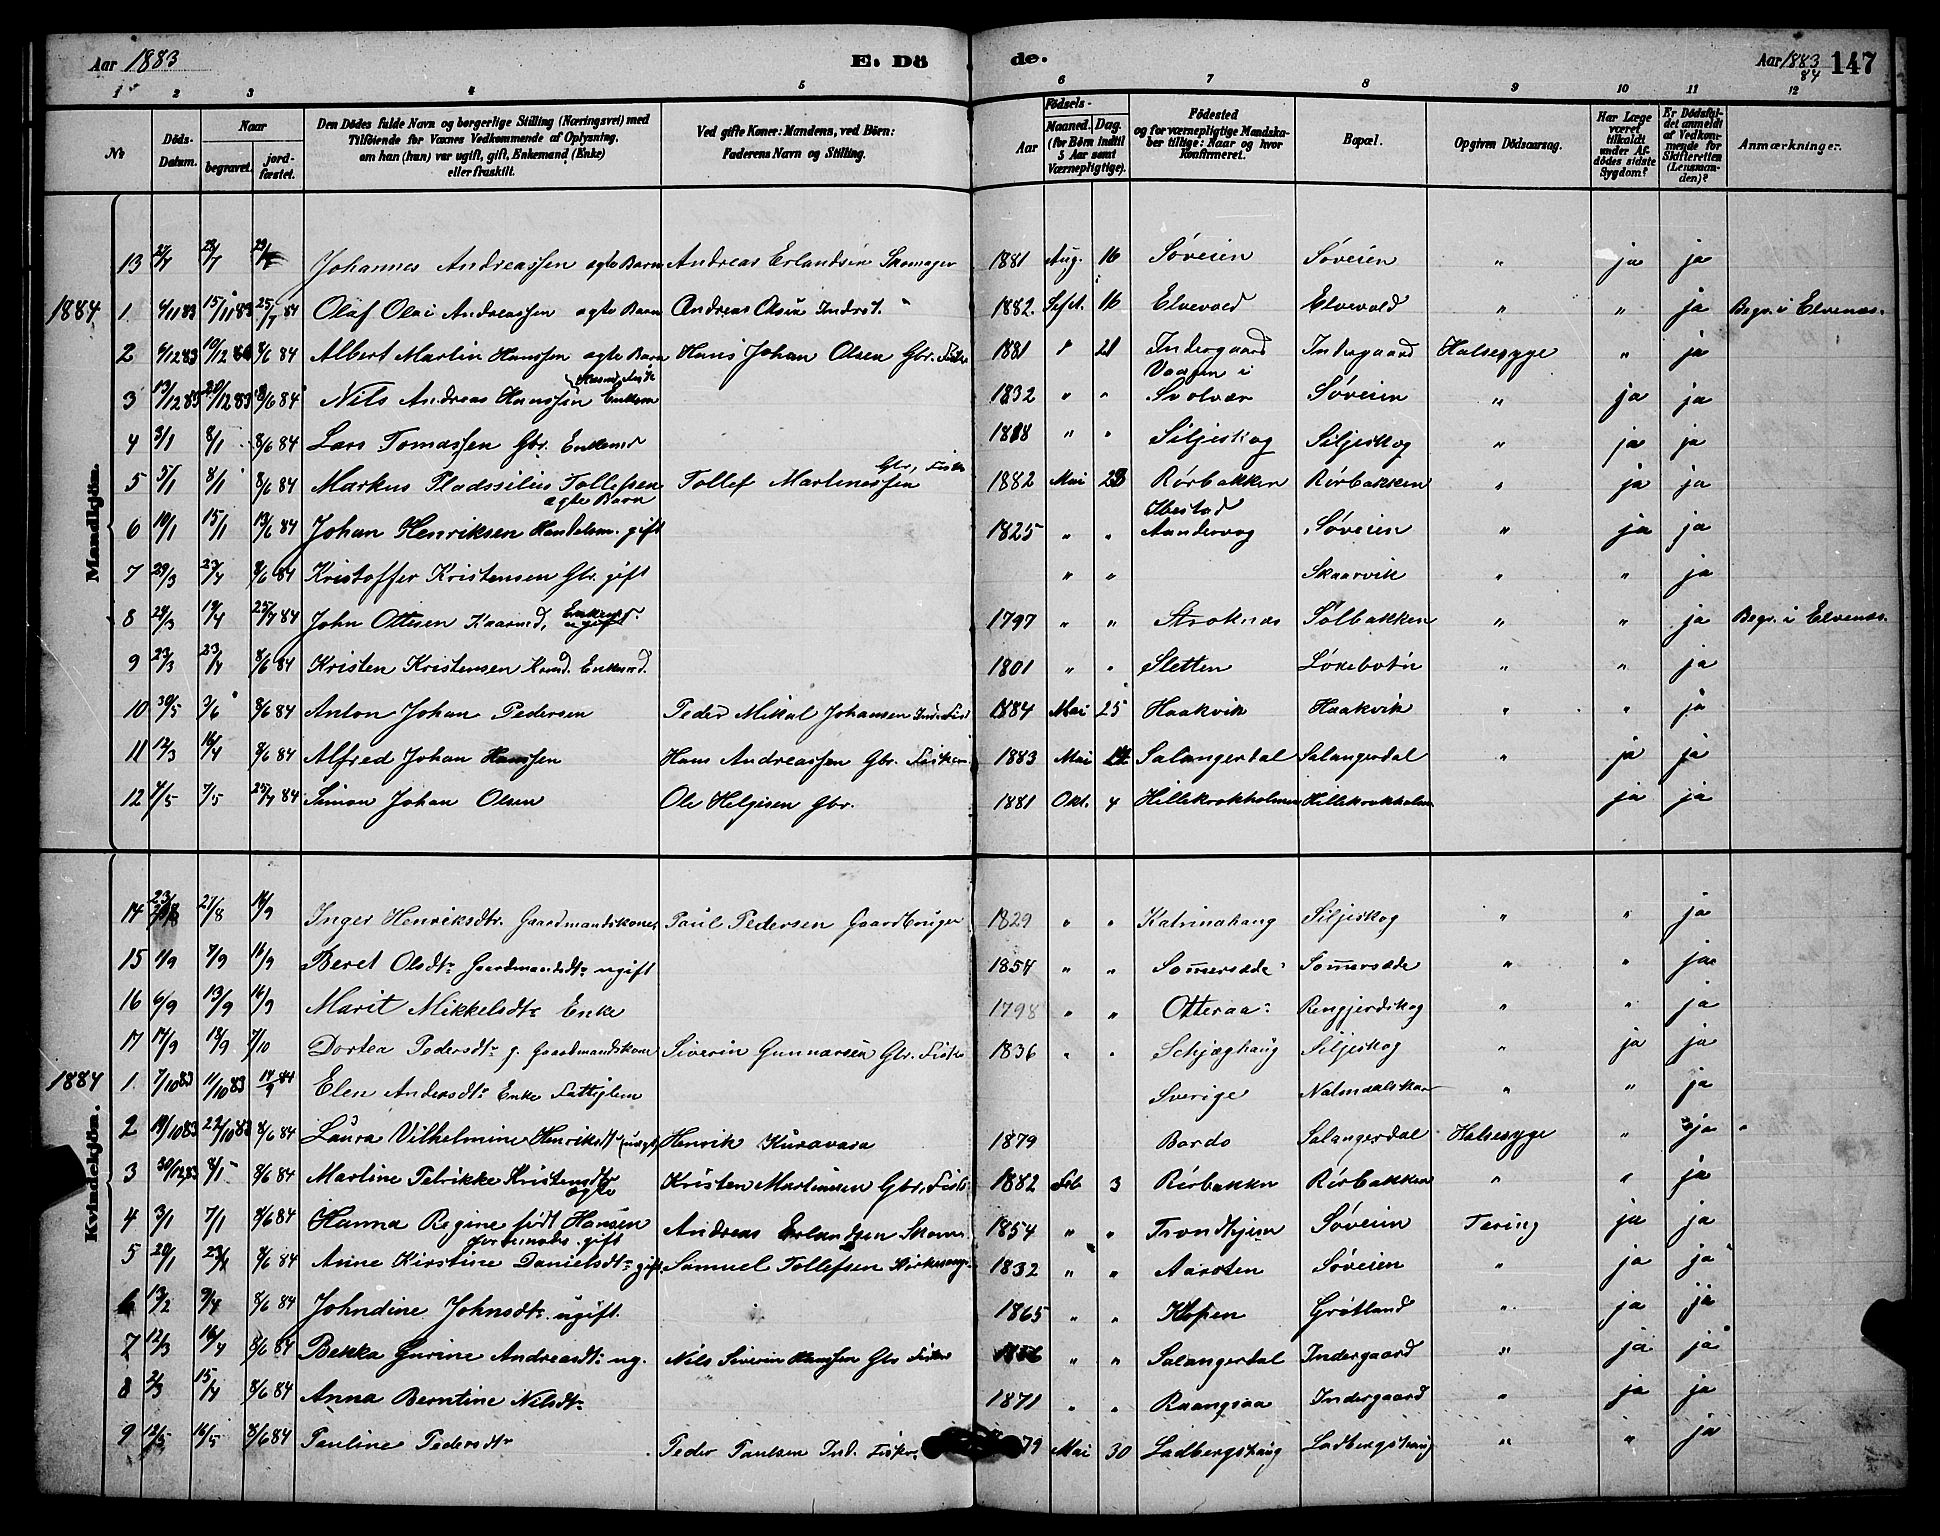 Aar 1883
E. Dö
de.
Aar 1883 147
84
1 2 3 4 5 6 7 8 9 10 11 12
№
Döds-Datum.
Naar
begravet.
jord-fæstet.
Den Dödes fulde Navn og borgerlige Stilling (Næringsvei) med Tilföiende for Voxnes Vedkommende af Oplysning, om han (hun) var ugift, gift, Enkemand (Enke) eller fraskilt.
Ved gifte Koner: Mandens, ved Börn: Faderens Navn og Stilling.
Födsels-
Aar
Maaned. Dag.
(for Börn indtil 5 Aar samt Værnepligtige).
Födested og for værnepligtige Mandskaber tillige: Naar og hvor Konfirmeret.
Bopæl.
Opgiven Dödsaarsag.
Har Læge været tilkaldt under Afdödes sidste Sygdom?
Er Dödsfaldet anmeldt af Vedkommende for Skifteretten (Lensmanden)?
Anmærkninger.
Mandkjön.
13 Johannes Andreassen ægte Barn Andreas Erlandsen Skomager 1881 Aug. 16 Søveien Søveien " ja ja
1884 1 4/11 83 15/11 83 25/7 84 Olaf Olai Andreassen ægte Barn Andreas Olsen Inderst. 1882. Sept. 16 Elvevold Elvevold " " ja Begr. i Elvenæs.
2 6/12 83 19/12 8/6 84 Albert Martin Hanssen ægte Barn Hans Johan Olsen Gbr. Fisker 1881 21 Indergaard Indergaard Halsesyge " ja
3 13/12 83 20/12 83 8/6 84 Nils Andreas Hanssen Enkem 1832 " " Vaagen i Svolvær Søveien " ja ja
4 3/1 8/1 8/6 84 Lars Tomassen Gbr. Enkemd 1818 " " Siljeskog Siljeskog " ja ja
5 5/1 8/1 8/6 84 Markus Pladssilius Tollefsen ægte Barn Tollef Martenassen Gbr. Fisker 1882 Mai 23 Rörbakken Rörbakken " ja ja
6 10/1 15/1 13/6 84 Johan Henriksen Handelsm. gift 1825 " " Ibestad Aandervag Søveien " ja ja
7 29/3 23/4 8/6 84 Kristoffer Kristensen Gbr. gift " " Skaarvik " " ja
8 24/3 19/4 25/7 84 John Ottesen Kaarmd, Enkemd. 1797 " " Stroknæs Sølbakken " " ja Begr. i Elvenæs.
9 23/3 23/4 8/6 84 Kristen Kristensen Kmd. Enkemd. 1801 " " Sletten Löksebotn " " ja
10 30/5 3/6 8/6 84 Anton Johan Pedersen Peder Mikal Johansen Ind. Fisk 1884 Mai 25 Haakvik Haakvik " " ja
11 12/3 16/4 8/6 84 Alfred Johan Hanssen Hans Andreassen Gbr. Fisker 1883 Mai Salangerdal Salangerdal " ja ja
12 4/5 7/5 25/7 84 Simon Johan Olsen Ole Helgesen Gbr. 1881 Okt. 4 Hillekrokholmen Hillekrokholm ja ja
Kvindekjön.
14 27/8 16/9 Inger Henriksdtr. Gaardmandskone, Paul Pedersen Gaardbruger 1829 " " Katrinahaug Siljeskog " " ja
15 1/9 7/9 16/9 Beret Olsdtr Gaardmandsdtr ugift 1854 " " Sommersæde Sommersæde " " ja
16 6/9 13/9 16/9 Marit Mikkelsdtr Enke 1798 " " Otteraa Rengjerdskog " " ja
17 14/9 18/9 7/10 Dortea Pedersdtr g. Gaardmandskone Siverin Gunnarsen Gbr. Fisker 1836 " " Schjæghaug Siljeskog " ja ja
1884 1 7/10 83 11/10 83 14/9 84 Elen Andersdtr Enke Fattiglem Sverige " " ja
2 19/10 83 22/10 83 8/6 84 Laura Vilhelmine Henriksdtr (uægte) Henrik Kuravara 1879 Bardo Salangerdal Halsesyge " ja
3 30/12 83 8/1 8/6 84 Martine Petrikke Kristensdtr ægte Kristen Martinsen Gbr. Fisk 1882 Feb 3 Rörbakken Rörbakken " " ja
4 3/1 7/1 8/6 84 Hanna Regine født Hansen gift Andreas Erlandsen Skom. 1854 " " Trondhjem Søveien Tæring ja ja
5 20/1 8/6 84 Anne Kirstine Danielsdtr gift. Samuel Tollefsen Kirkesang. 1832 " " Aarsten Søveien " ja ja
6 13/2 9/4 8/6 84 Johndine Johnsdtr. ugift. 1865 " " Kløpen Grøtland " ja ja
7 12/3 16/4 8/6 84 Bekka Gurine Andreasdtr ug. Nils Siverin Hanssen Gbr Fisker " " Salangerdal Indergaard " ja ja
8 2/3 15/4 8/6 84 Anna Berntine Nilsdtr 1871 " " Raangsaa Indergaard " ja ja
9 12/5 16/5 8/6 84 Pauline Pedersdtr Peder Paulsen Ind. Fisker. 79 Mai 30 Ladbergshaug Ladbergshaug " " ja